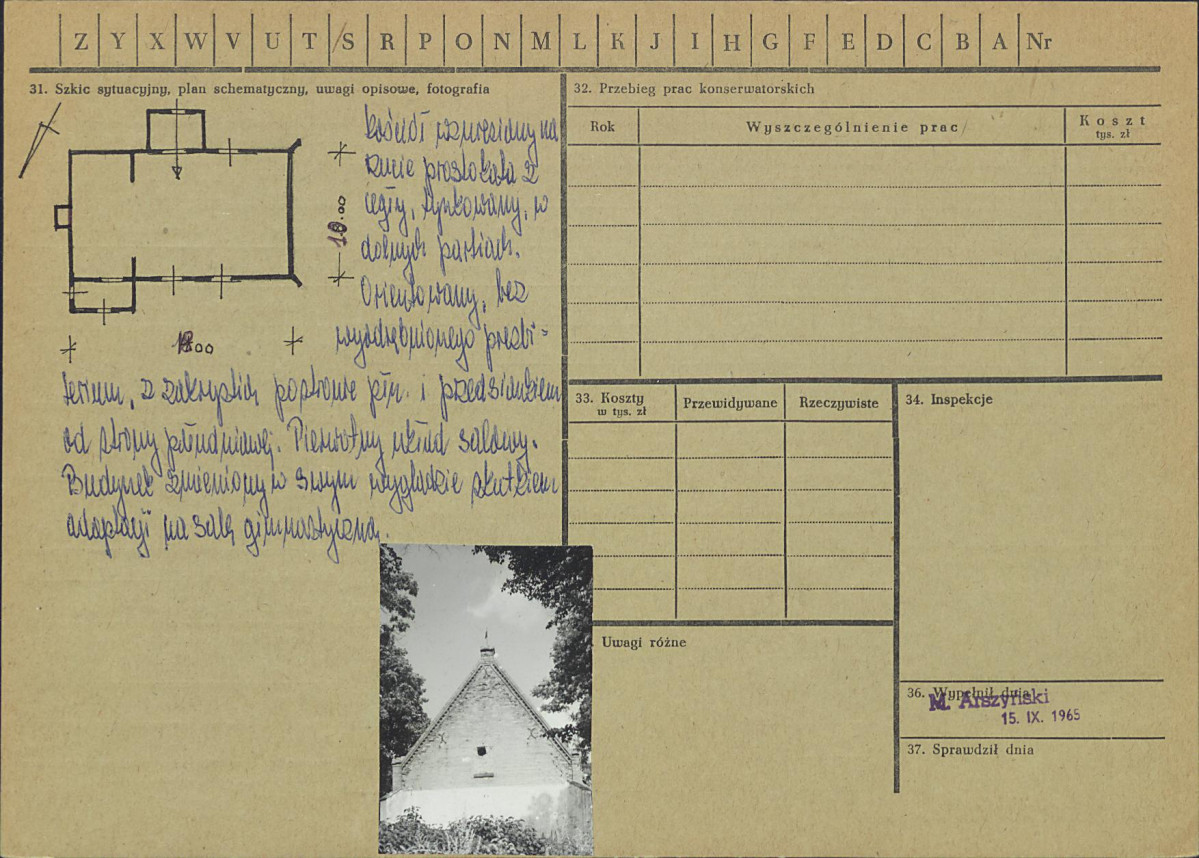 Z Y X W V U T S R P O N M L K J I H G F E D C B A Nr
31. Szkic sytuacyjny, plan schematyczny, uwagi opisowe, fotografia
Kościół wzniesiony na
rzucie prostokąta z
cegły, tynkowany, w
dolnych partiach.
Orientowany, bez
wyodrębnionego prezbi=
terium, z zakrystią po stronie płn. i przedsionkiem
od strony południowej. Pierwotny układ salowy.
Budynek zmieniony w swym wyglądzie skutkiem
adaptacji na salę gimnastyczną.
10.00
18.00
32. Przebieg prac konserwatorskich
Rok
Wyszczególnienie prac
Koszt
tys. zł
33. Koszty
w tys. zł
Przewidywane
Rzeczywiste
34. Inspekcje
Uwagi różne
36. Wypełnił dnia
M. Arszyński
15. IX. 1965
37. Sprawdził dnia